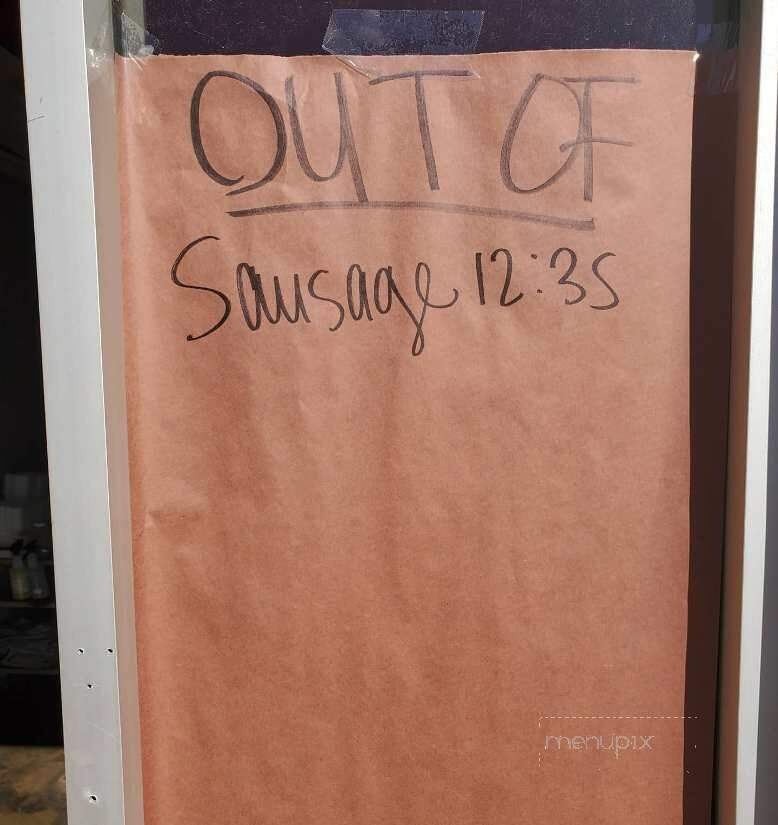 OUT OF
Sausage 12:35
menupix